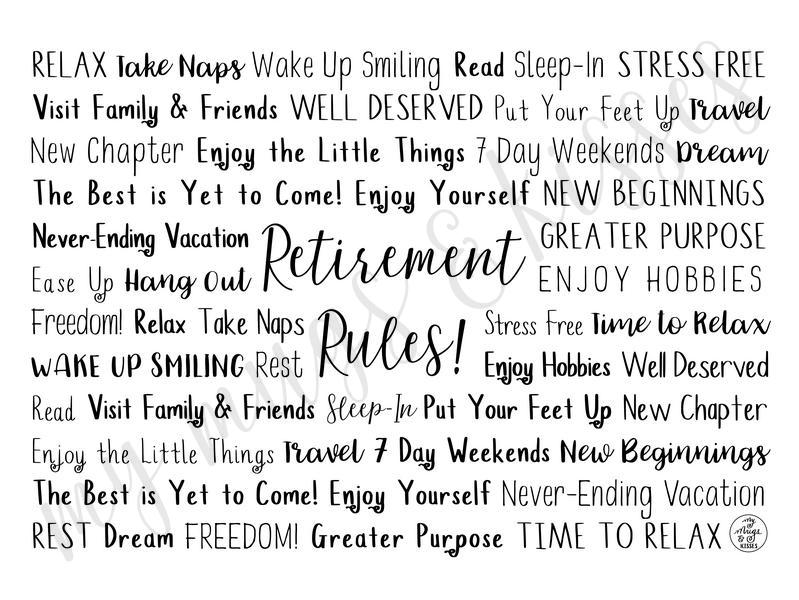 RELAX Take Naps Wake Up Smiling Read Sleep-In STRESS FREE
Visit Family & Friends WELL DESERVED Put Your Feet Up Travel
New Chapter Enjoy the Little Things 7 Day Weekends Dream
The Best is Yet to Come! Enjoy Yourself NEW BEGINNINGS
Never-Ending Vacation Retirement GREATER PURPOSE
Ease Up Hang Out ENJOY HOBBIES
Freedom! Relax Take Naps Rules! Stress Free Time to Relax
WAKE UP SMILING Rest Enjoy Hobbies Well Deserved
Read Visit Family & Friends Sleep-In Put Your Feet Up New Chapter
Enjoy the Little Things Travel 7 Day Weekends New Beginnings
The Best is Yet to Come! Enjoy Yourself Never-Ending Vacation
REST Dream FREEDOM! Greater Purpose TIME TO RELAX
my Mugs & KISSES
my mugs & kisses